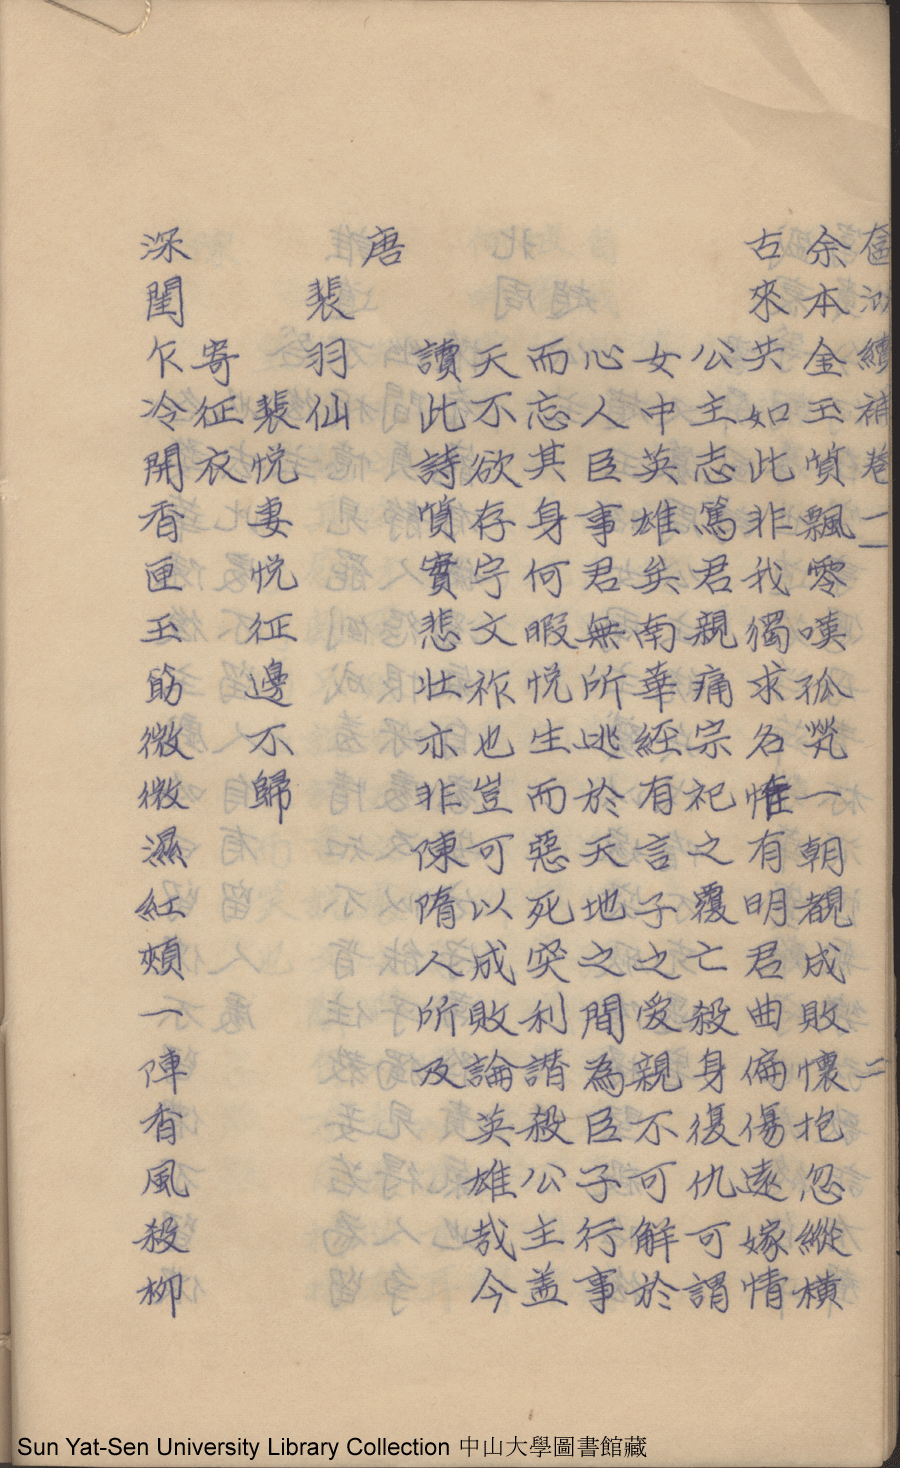 奩泐續補卷一 二
余本金玉貭飄零嘆孤煢一朝覩成敗懷抱忽縱橫
古來共如此非我獨求名惟有明君曲偏傷遠嫁情
公主志篤君親痛宗祀之覆亡殺身復仇可謂
女中英雄矣南華經有言子之愛親不可解於
心人臣事君無所逃於天地之間為臣子行事
而忘其身何暇悅生而惡死突利譖殺公主盖
天不欲存宇文祚也豈可以成敗論英雄哉今
讀此詩貭實悲壯亦非陳隋人所及
唐
裴羽仙
裴悅妻悅征邊不歸
寄征衣
深閨乍冷開香匣玉筯微微濕紅頰一陣杳風殺柳
Sun Yat-Sen University Library Collection 中山大學圖書館藏